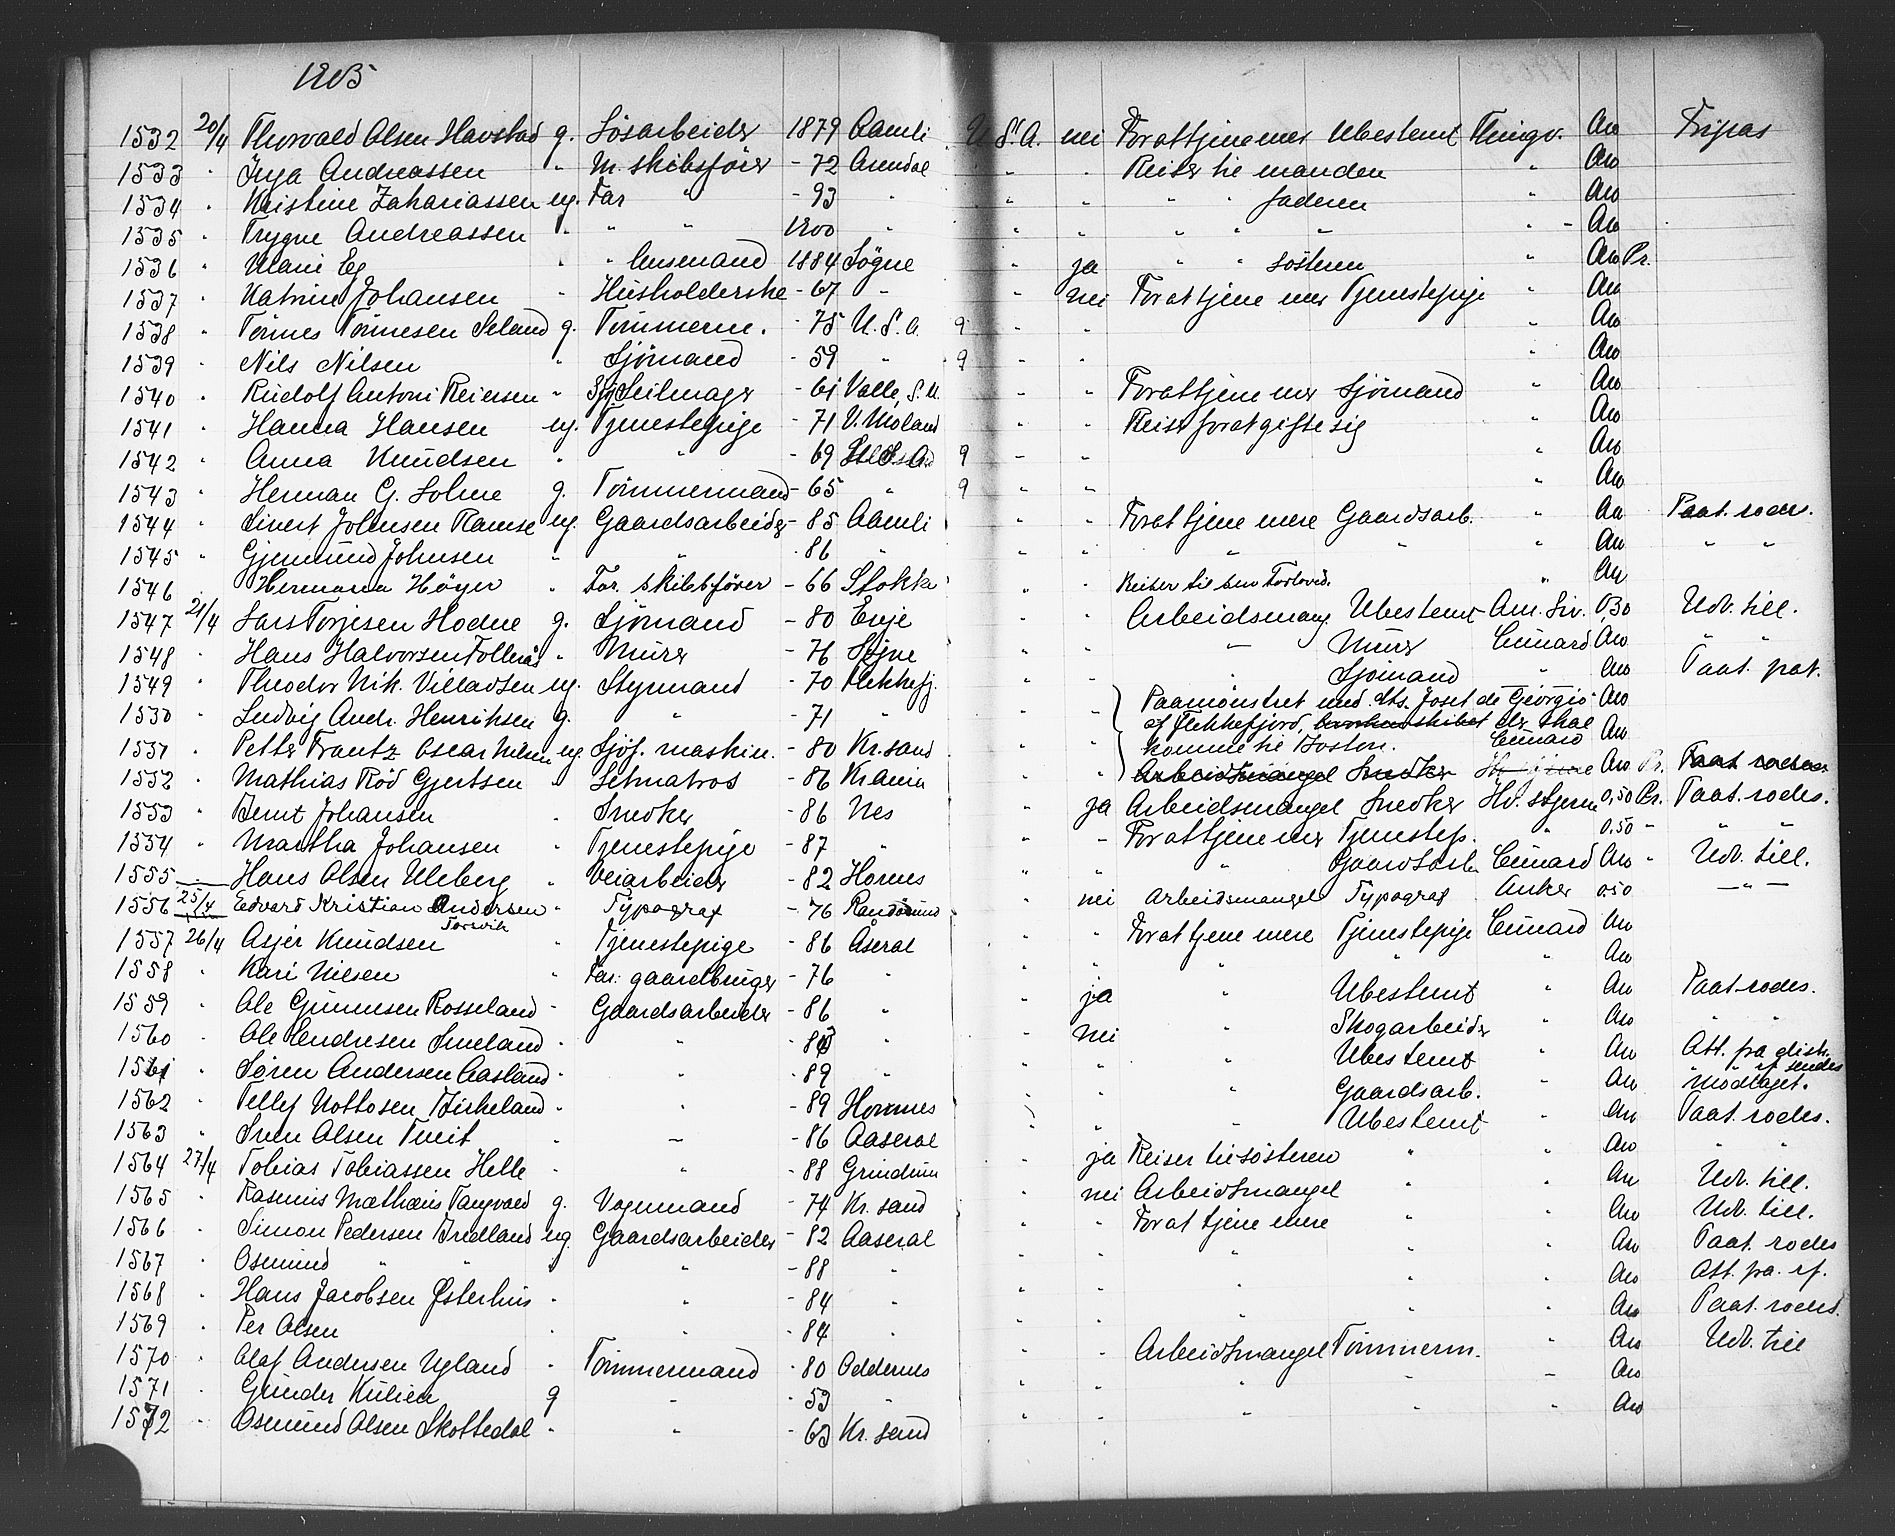 1905
1532 20/4 Thorvald Olsen Havstad g. Løsarbeider 1879 Aamli U. S. A. nei For at tjene mer Ubestemt Thingv. An Fripas
1533 " Inga Andreassen " M. skibsfører - 72 Arendal " " Reiser til manden " An
1534 " Kristine Zahariassen ug. Far " - 93 " " " " " faderen " An
1535 " Trygve Andreassen " " " 1900 " " " " " " " - An
1536 " Marie Eg " " 1884 Søgne " ja " " søsteren " An Pr.
1537 " Katrine Johansen " Husholderske - 67 " " nei For at tjene mer Tjenestepige " An
1538 " Tønnes Tønnesen Seland g. Tømmerm. - 75 U. S. A. 9 " " An
1539 " Nils Nilsen " Sjømand - 59 " 9 " " An
1540 " Rudolf Antoni Reiersen " Seilmager - 61 Valle, S. M. " " For at tjene mer Sjømand " An
1541 " Hanna Hansen ug. Tjenestepige - 71 V. Moland " " Reiser for at gifte sig " An
1542 " Anna Knudsen " " - 69 9 - " " An
1543 " Herman G. Solme g. Tømmermand - 65 " 9 " " " An
1544 " Sivert Johnsen Ramse ug. Gaardsarbeider - 85 Aamli " " For at tjene mere Gaardsarb. " An Paat. rodes.
1545 " Gjermund Johnsen " " - 86 " " " " " " An " "
1546 " Hermana Høyer " Far. skibsfører - 66 Stokke " " Reiser til sin Forloved. " An
1547 21/4 Lars Torjesen Hodne g. Sjømand - 80 Evje " " Arbeidsmang. Ubestemt Am. Liv. 0,30 Udv. till.
1548 " Hans Halvorsen Follerås " Murer - 76 Søgne " " — Murer Cunard An " "
1549 " Theodor Nik. Villadsen ug. Styrmand - 70 Flekkefj. " " " Sjømand " An Paat. pat.
1550 " Ludvig Andr. Henriksen g. " - 71 " " Paamønstret med Josef de Georgio An
1551 " Petter Frantz Oscar Nilsen ug. Sjøf. maskin. - 80 Kr. sand " " af Flekkefjord, der skal komme til Boston. Cunard An
1552 " Mathias Rød Gjertsen " Letmatros - 86 " " Arbeidsmangel Snedker An Pr. Paat. rodes
1553 " Bernt Johansen " Snedker - 86 Nes " ja Arbeidsmangel Snedker Hv. stjerne 0,50 Pr. Paat. rodes.
1554 " Martha Johansen " Tjenestepige - 87 " " For at tjene mer Tjenestep. " 0.50 " " "
1555 " Hans Olsen Uleberg " Veiarbeider - 82 Hornes " " " Gaardsarb. Cunard An " Udv. till.
1556 25/4 Edvard Kristian Andersen " Typograf - 76 Randøsund " nei Arbeidsmangel Typograf Anker 0.50 — " —
1557 26/4 Asjer Knudsen " Tjenestepige - 86 Åseral " " For at tjene mere Tjenestepige Cunard An
1558 " Kari Nilsen " Far. gaardbruger - 76 " " " " " " An
1559 " Ole Gunnusen Rosseland " Gaardsarbeider - 86 " " ja " Ubestemt " An Paat. rodes.
1560 " Ole Smeland " " - 83 " " nei " Skogarbeider " An " "
1561 " Søren Andersen Aasland " " - 89 " " " " Ubestemt " An Att. fra distr. rf. sendes
1562 " Tellef Nottosen Birkeland " " - 89 Hornnes " " " Gaardsarb. " An Modtaget.
1563 " Sven Olsen Tveit " — - 86 Aaseral " " " Ubestemt " An Paat. rodes.
1564 27/4 Tobias Tobiassen Helle " " - 88 Grindum " ja Reiser til søsteren " " An " "
1565 " Rasmus Mathæus Tangvald g. Vognmand - 74 Kr. sand " nei Arbeidsmangel " " An Udv. till.
1566 " Simon Pedersen Bredland ug. Gaardsarbeider - 82 Aaseral " " For at tjene mere " " An Udv. till.
1567 " Osmund " " " " - 88 " " " " " " An Paat. rodes
1568 " Hans Jacobsen Østerhus " " - 84 " " " " " " An Att. fra. rf.
1569 " Per Olsen " " - 84 " " " " " " An Paat. rodes.
1570 " Olaf Andersen Ugland " Tømmermand - 80 Oddernes " " Arbeidsmangel Tømmerm. " An Udv. till
1571 " Gunder Kulien g " - 53 " " " " " " An
1572 " Osmund Olsen Skottedal " " - 63 Kr. sand " " " " " An